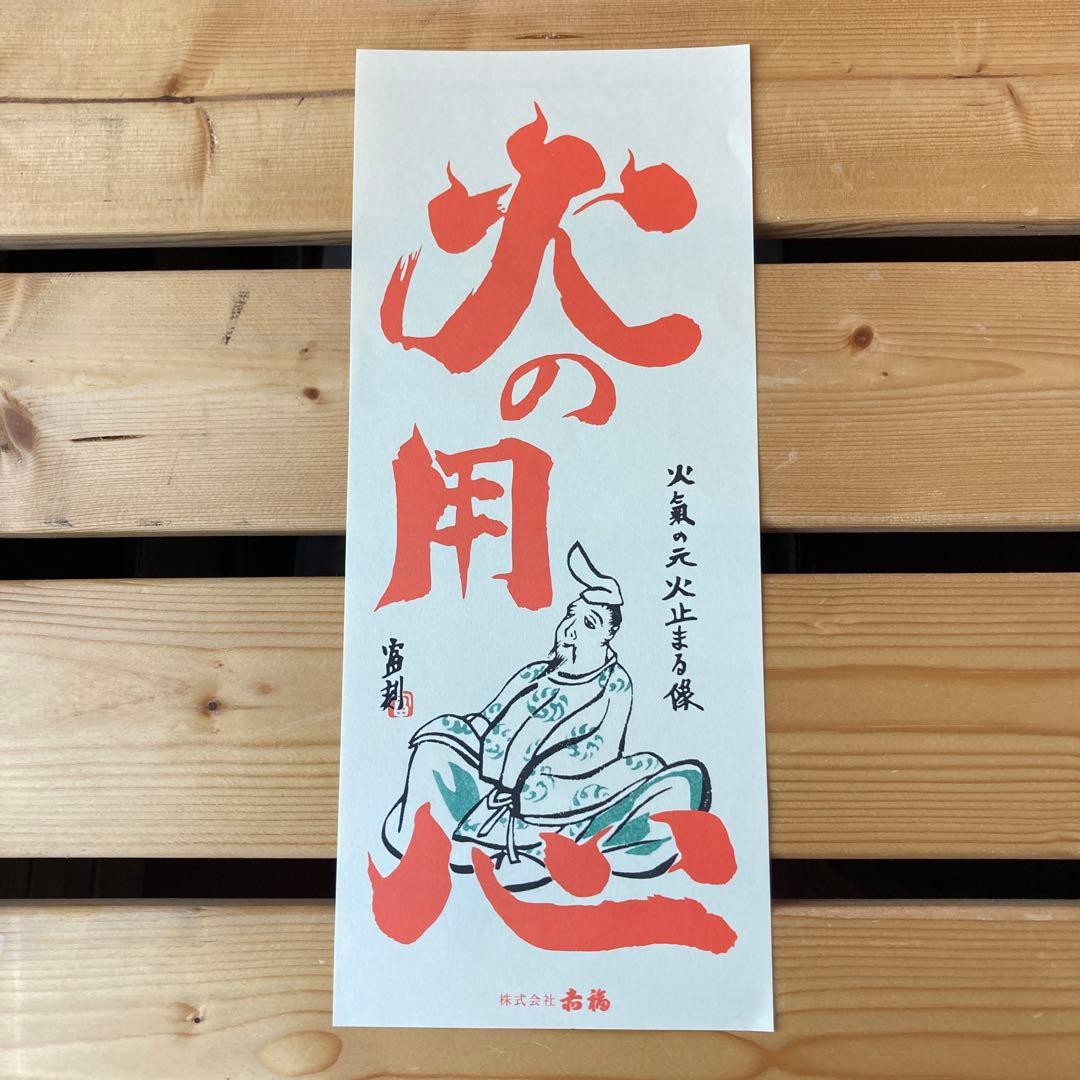 火の用心
火氣の元火止まる様
富刻
株式会社赤福